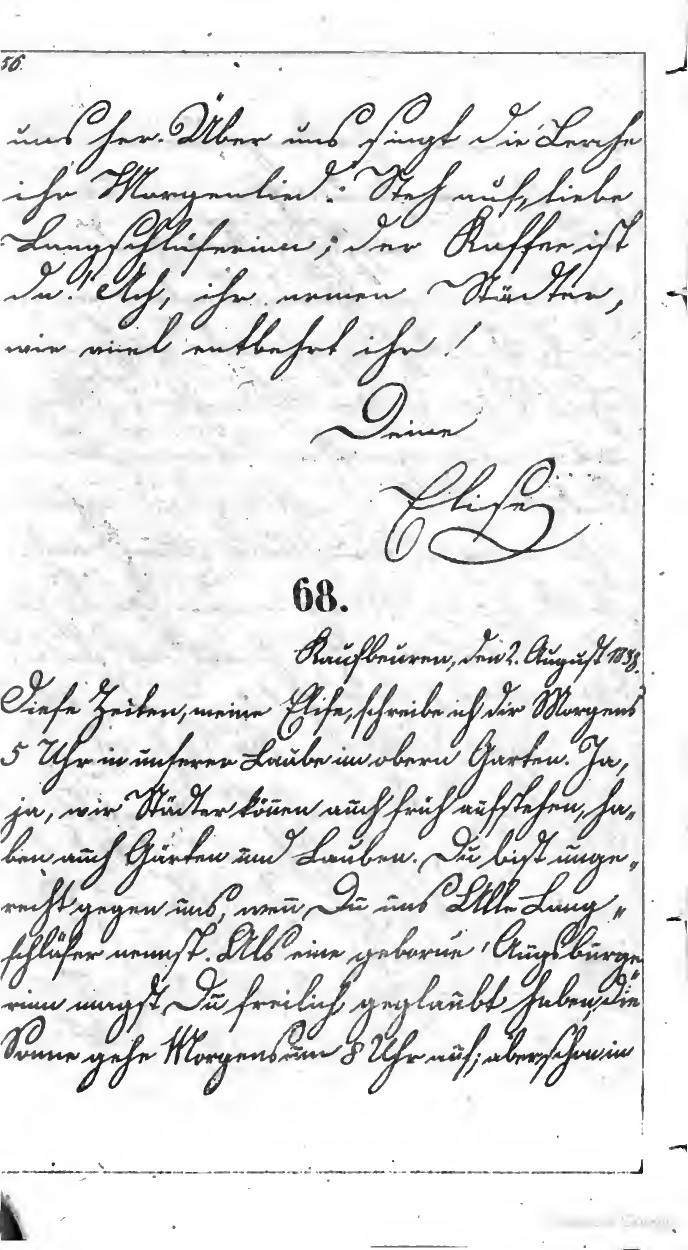 56.
uns her. Über uns singt die Lerche
ihr Morgenlied: Steh auf, liebe
Langschläferinn; der Kaffee ist
da! Ach, ihr armen Städter,
wie viel entbehrt ihr!
Deine
Elise
68.
Kaufbeuren, den 2. August 1838.
Diese Zeilen, meine Elise, schreibe ich dir Morgens
5 Uhr in unserer Laube im obern Garten. Ja,
ja, wir Städter kön̄en auch früh aufstehen, ha„
ben auch Gärten und Lauben. Du bist unge„
recht gegen uns, wen̄ Du uns Alle Lang„
schläfer nennst. Als eine geborne Augsburge
rinn magst Du freilich geglaubt haben, die
Sonne gehe Morgens um 8 Uhr auf; aber schon in